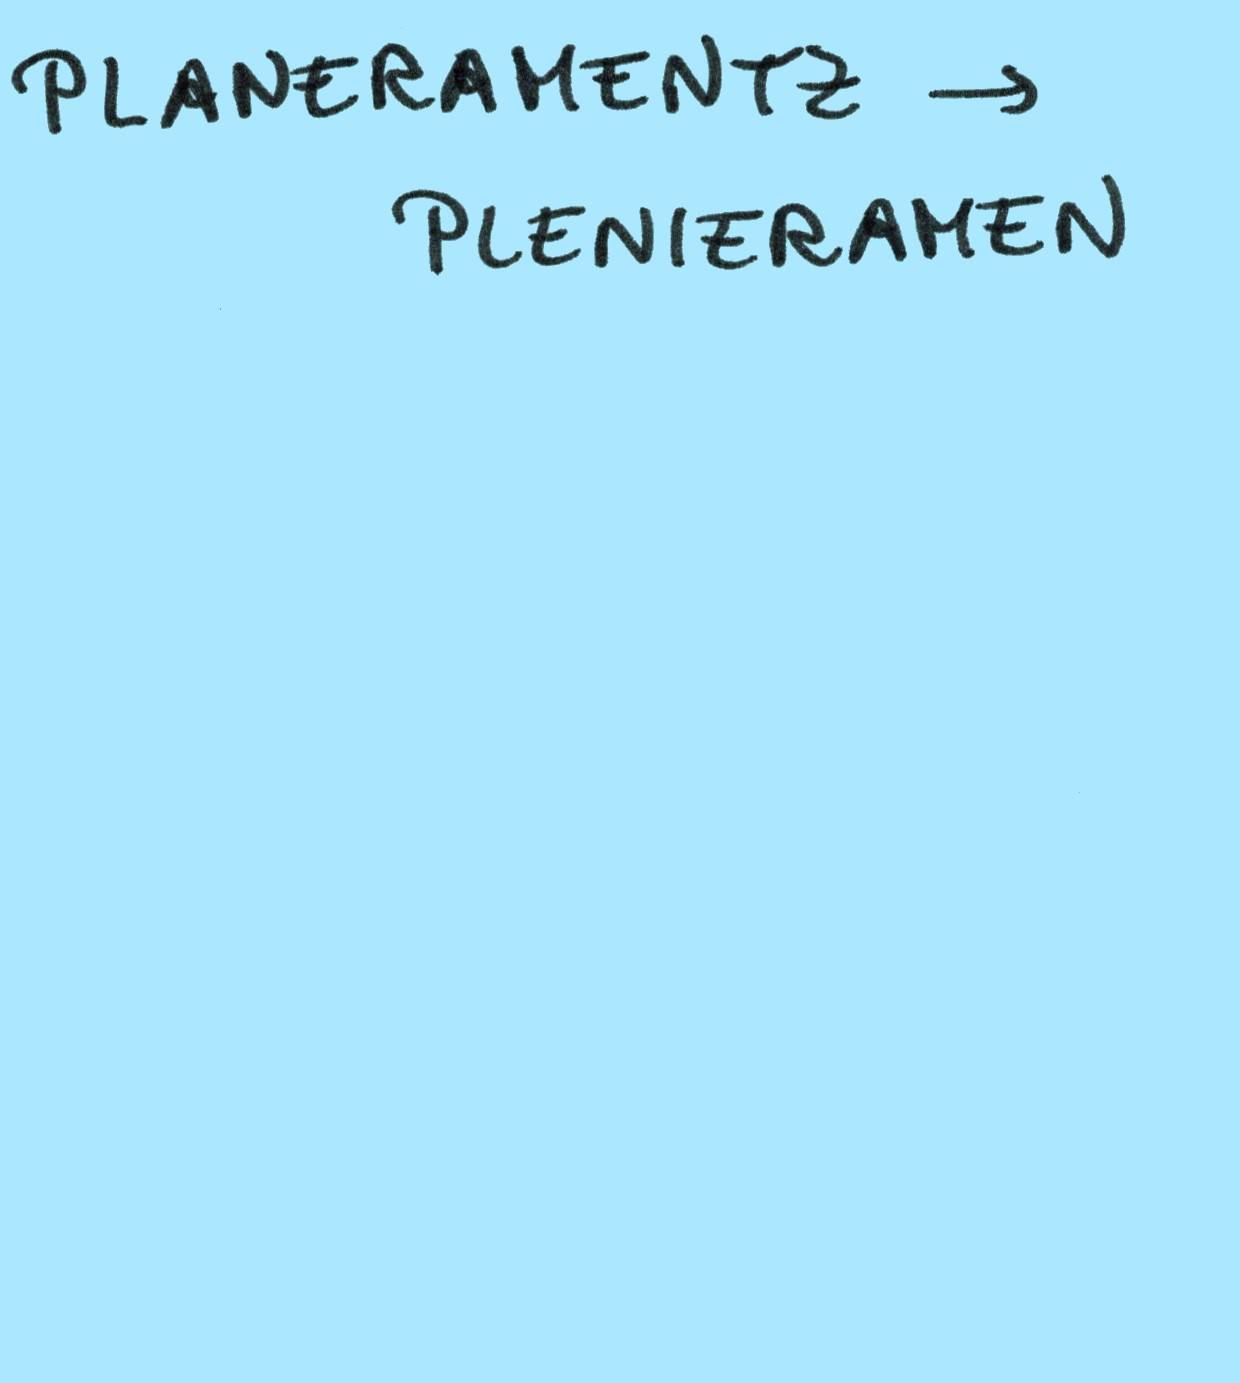 PLANERAMENTZ →
PLENIERAMEN